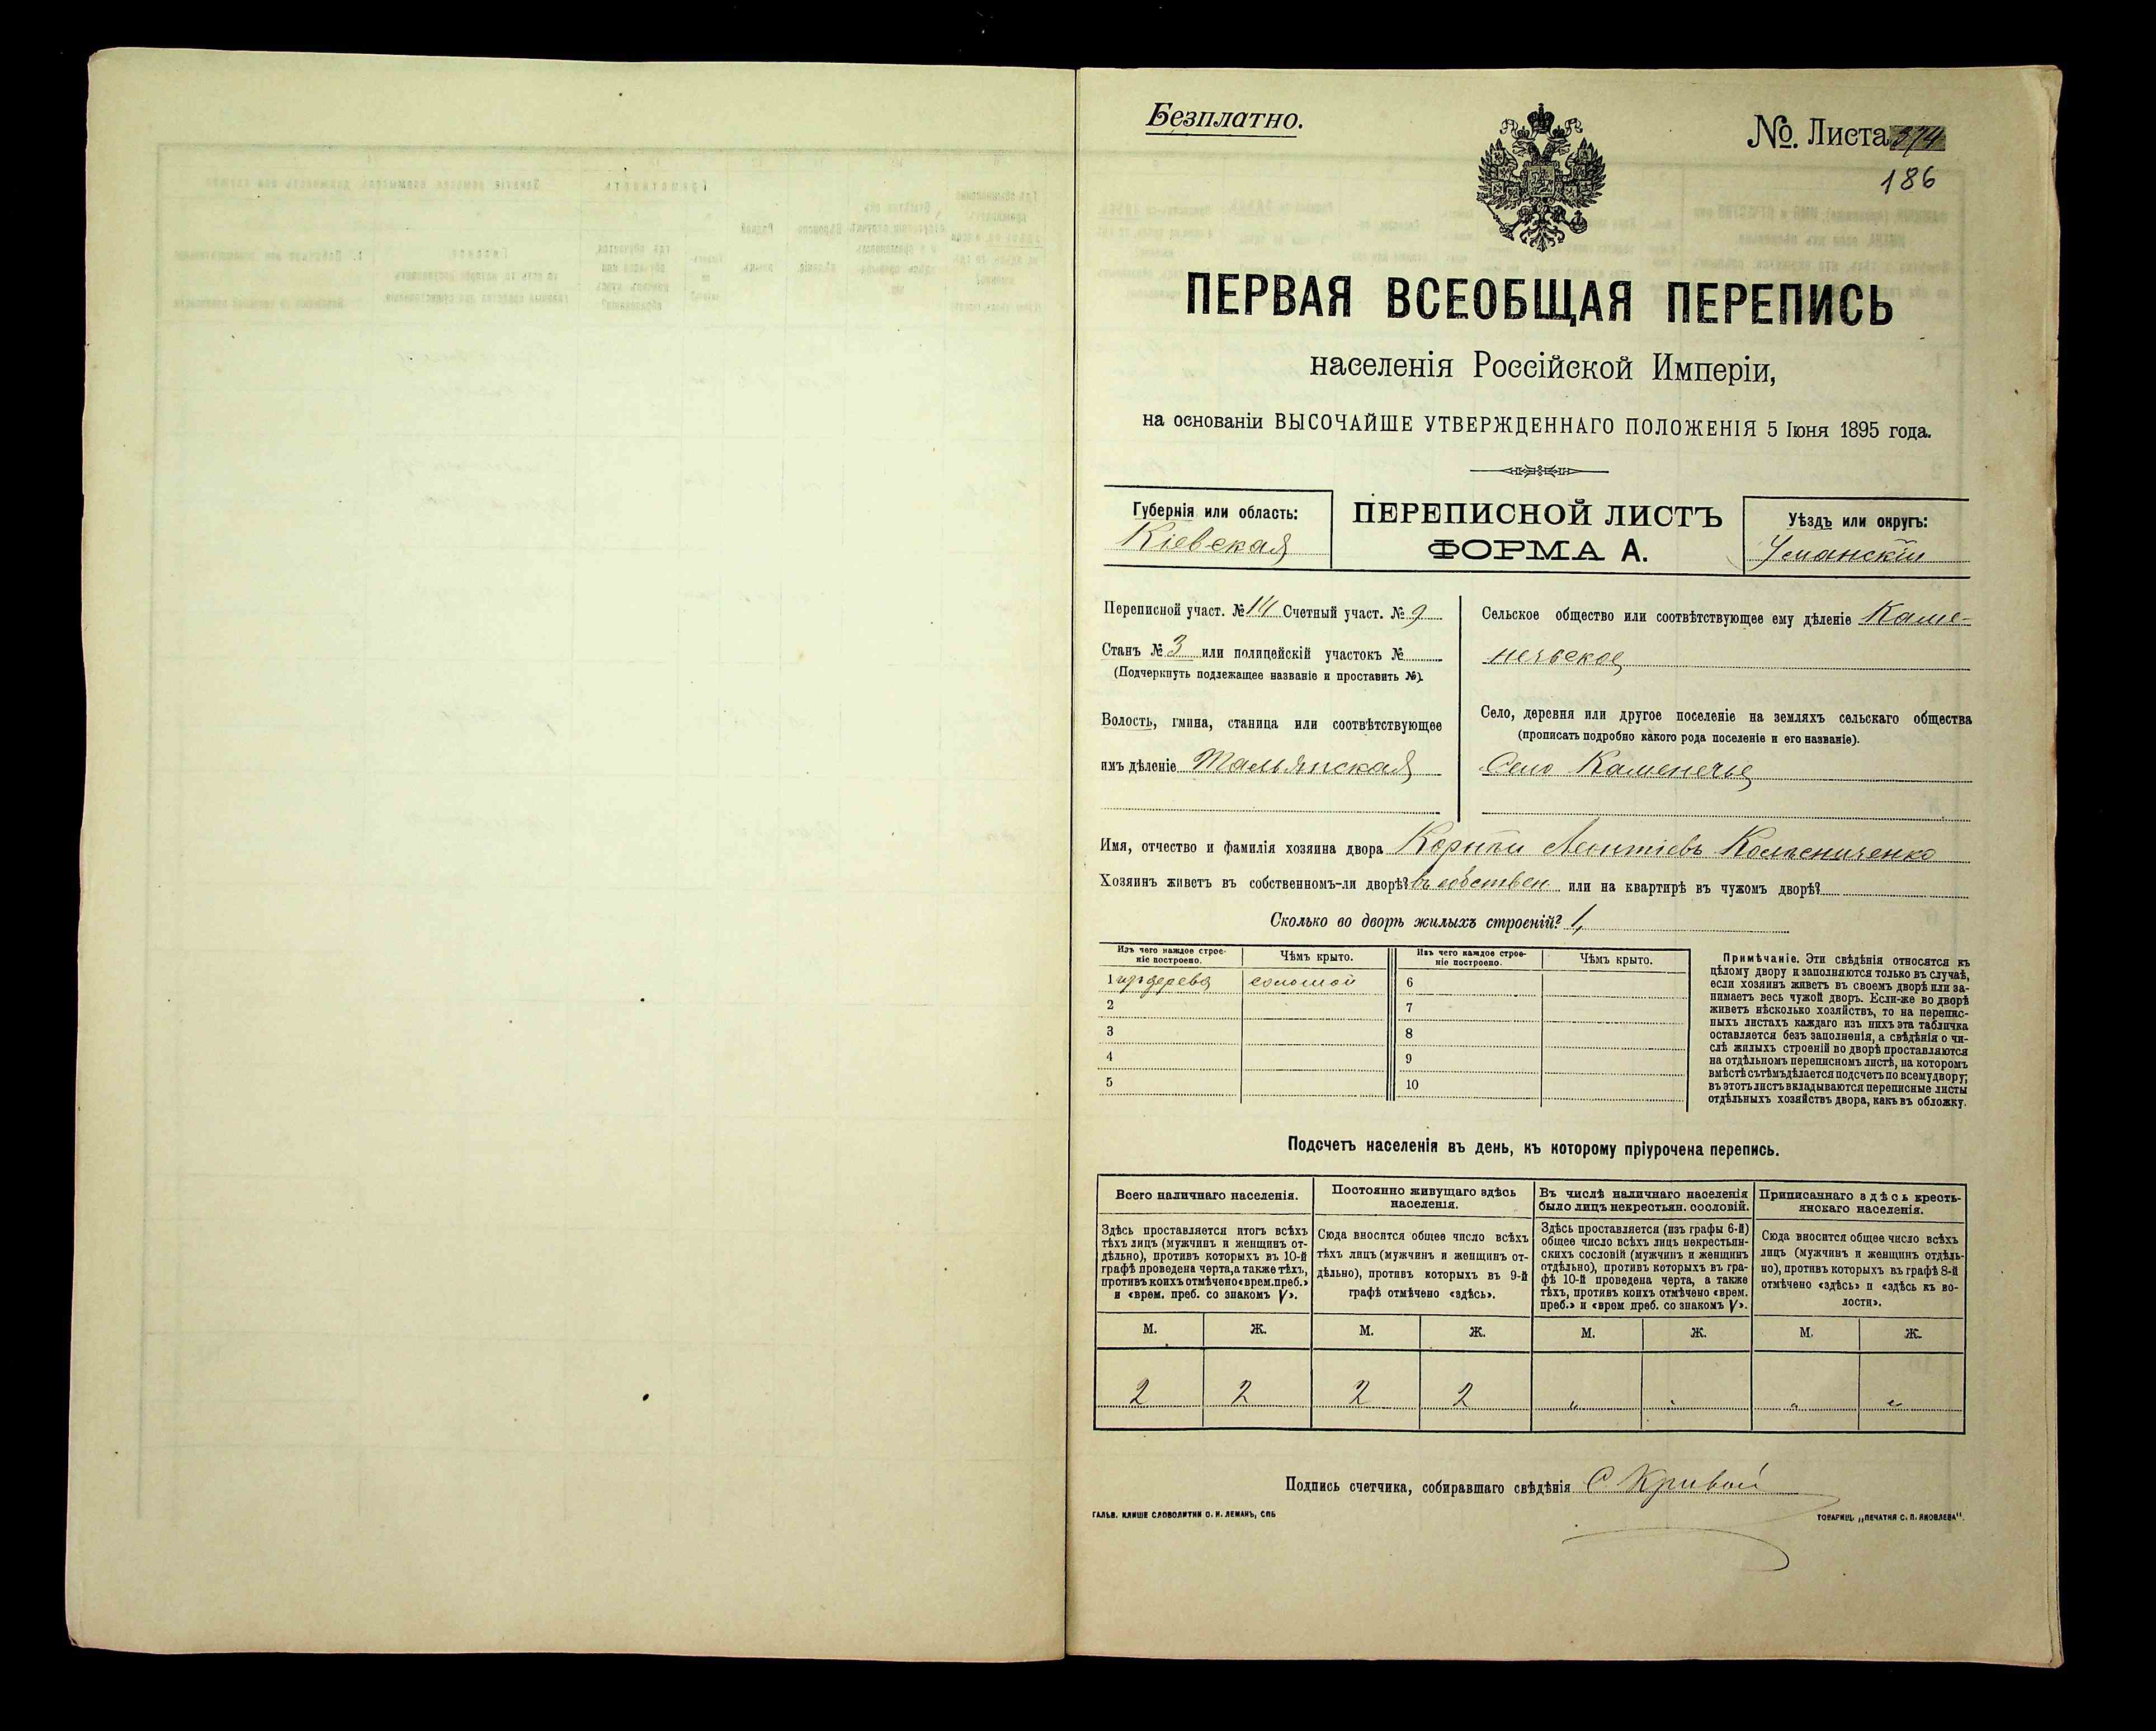 Безплатно.
№. Листа 374
186
ПЕРВАЯ ВСЕОБЩАЯ ПЕРЕПИСЬ
населенія Россійской Имперіи,
на основаніи ВЫСОЧАЙШЕ УТВЕРЖДЕННАГО ПОЛОЖЕНІЯ 5 Іюня 1895 года.
Губернія или область:
Кіевская
ПЕРЕПИСНОЙ ЛИСТЪ
ФОРМА А.
Уѣздъ или округъ:
Уманскій
Переписной участ. № 14 Счетный участ. № 9
Станъ № 3 или полицейскій участокъ №
(Подчеркнуть подлежащее названіе и проставить №).
Волость, гмина, станица или соотвѣтствующее
имъ дѣленіе Тальянская
Сельское общество или соотвѣтствующее ему дѣленіе Каме-
нечьское
Село, деревня или другое поселеніе на земляхъ сельскаго общества
(прописать подробно какого рода поселеніе и его названіе).
Село Каменечье
Имя, отчество и фамилія хозяина двора Леонтіевъ Колесниченко
Хозяинъ живетъ въ собственномъ-ли дворѣ? въ собствен или на квартирѣ въ чужомъ дворѣ?
Сколько во дворѣ жилыхъ строеній? 1,
Изъ чего каждое строе-
ніе построено.
Чѣмъ крыто.
Изъ чего каждое строе-
ніе построено.
Чѣмъ крыто.
1 изъ дерева соломой 6
2 7
3 8
4 9
5 10
Примѣчаніе. Эти свѣдѣнія относятся къ
цѣлому двору и заполняются только въ случаѣ,
если хозяинъ живетъ въ своемъ дворѣ или за-
нимаетъ весь чужой дворъ. Если-же во дворѣ
живетъ нѣсколько хозяйствъ, то на перепис-
ныхъ листахъ каждаго изъ нихъ эта табличка
оставляется безъ заполненія, а свѣдѣнія о чи-
слѣ жилыхъ строеній во дворѣ проставляются
на отдѣльномъ переписномъ листѣ, на которомъ
вмѣстѣ съ тѣмъ дѣлается подсчетъ по всему двору;
въ этотъ листъ вкладываются переписные листы
отдѣльныхъ хозяйствъ двора, какъ въ обложку.
Подсчетъ населенія въ день, къ которому пріурочена перепись.
Всего наличнаго населенія.
Здѣсь проставляется итогъ всѣхъ
тѣхъ лицъ (мужчинъ и женщинъ от-
дѣльно), противъ которыхъ въ 10-й
графѣ проведена черта, а также тѣхъ,
противъ коихъ отмѣчено «врем. преб.»
и «врем. преб. со знакомъ V».
Постоянно живущаго здѣсь
населенія.
Сюда вносится общее число всѣхъ
тѣхъ лицъ (мужчинъ и женщинъ от-
дѣльно), противъ которыхъ въ 9-й
графѣ отмѣчено «здѣсь».
Въ числѣ наличнаго населенія
было лицъ некрестьян. сословій.
Здѣсь проставляется (изъ графы 6-й)
общее число всѣхъ лицъ некрестьян-
скихъ сословій (мужчинъ и женщинъ
отдѣльно), противъ которыхъ въ гра-
фѣ 10-й проведена черта, а также
тѣхъ, противъ коихъ отмѣчено «врем.
преб.» и «врем преб. со знакомъ V».
Приписаннаго здѣсь кресть-
янскаго населенія.
Сюда вносится общее число всѣхъ
лицъ (мужчинъ и женщинъ отдѣль-
но), противъ которыхъ въ графѣ 8-й
отмѣчено «здѣсь» и «здѣсь къ во-
лости».
М. Ж. М. Ж. М. Ж. М. Ж.
2 2 2 2 " " " "
Подпись счетчика, собиравшаго свѣдѣнія С Кривой
ГАЛЬВ. КЛИШЕ СЛОВОЛИТНИ О. И. ЛЕМАНЪ, СПБ
ТОВАРИЩ. „ПЕЧАТНЯ С. П. ЯКОВЛЕВА“.